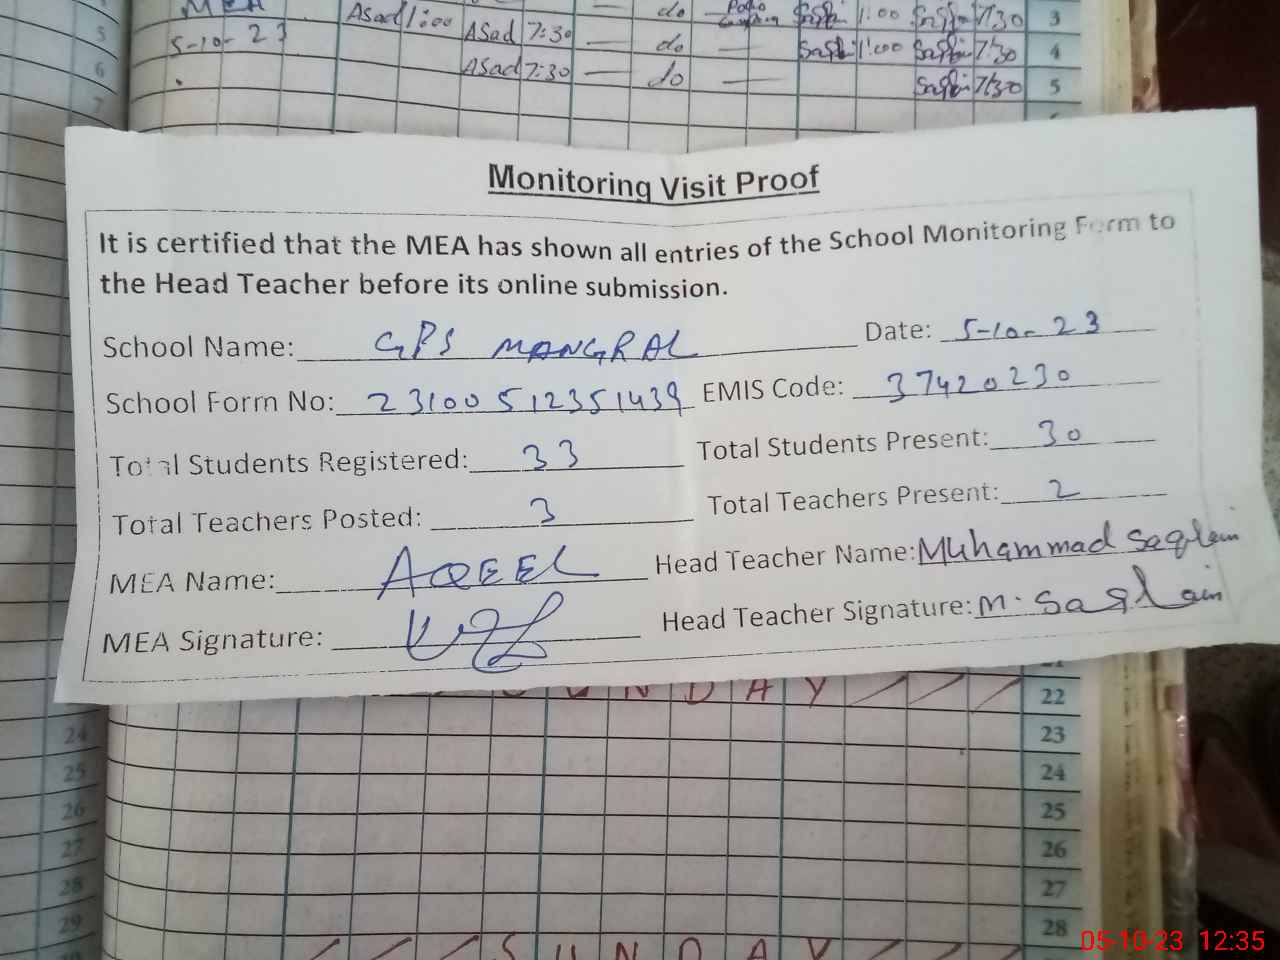 MEA Asad 1:00 do Polio 1:00 7:30 3
5 5-10-23 Asad 7:30 — do — Saqlain 1:00 Saqlain 7:30 4
6 Asad 7:30 — do — Saqlain 7:30 5
7
Monitoring Visit Proof
It is certified that the MEA has shown all entries of the School Monitoring Form to
the Head Teacher before its online submission.
School Name: GPS MANGRAL Date: 5-10-23
School Form No: 23100512351439 EMIS Code: 37420230
Total Students Registered: 33 Total Students Present: 30
Total Teachers Posted: 3 Total Teachers Present: 2
MEA Name: AQEEL Head Teacher Name: Muhammad Saqlain
MEA Signature: Head Teacher Signature: M. Saqlain
21
SUNDAY 22
24 23
25 24
26 25
27 26
28 27
29 28
SUNDAY
05-10-23 12:35